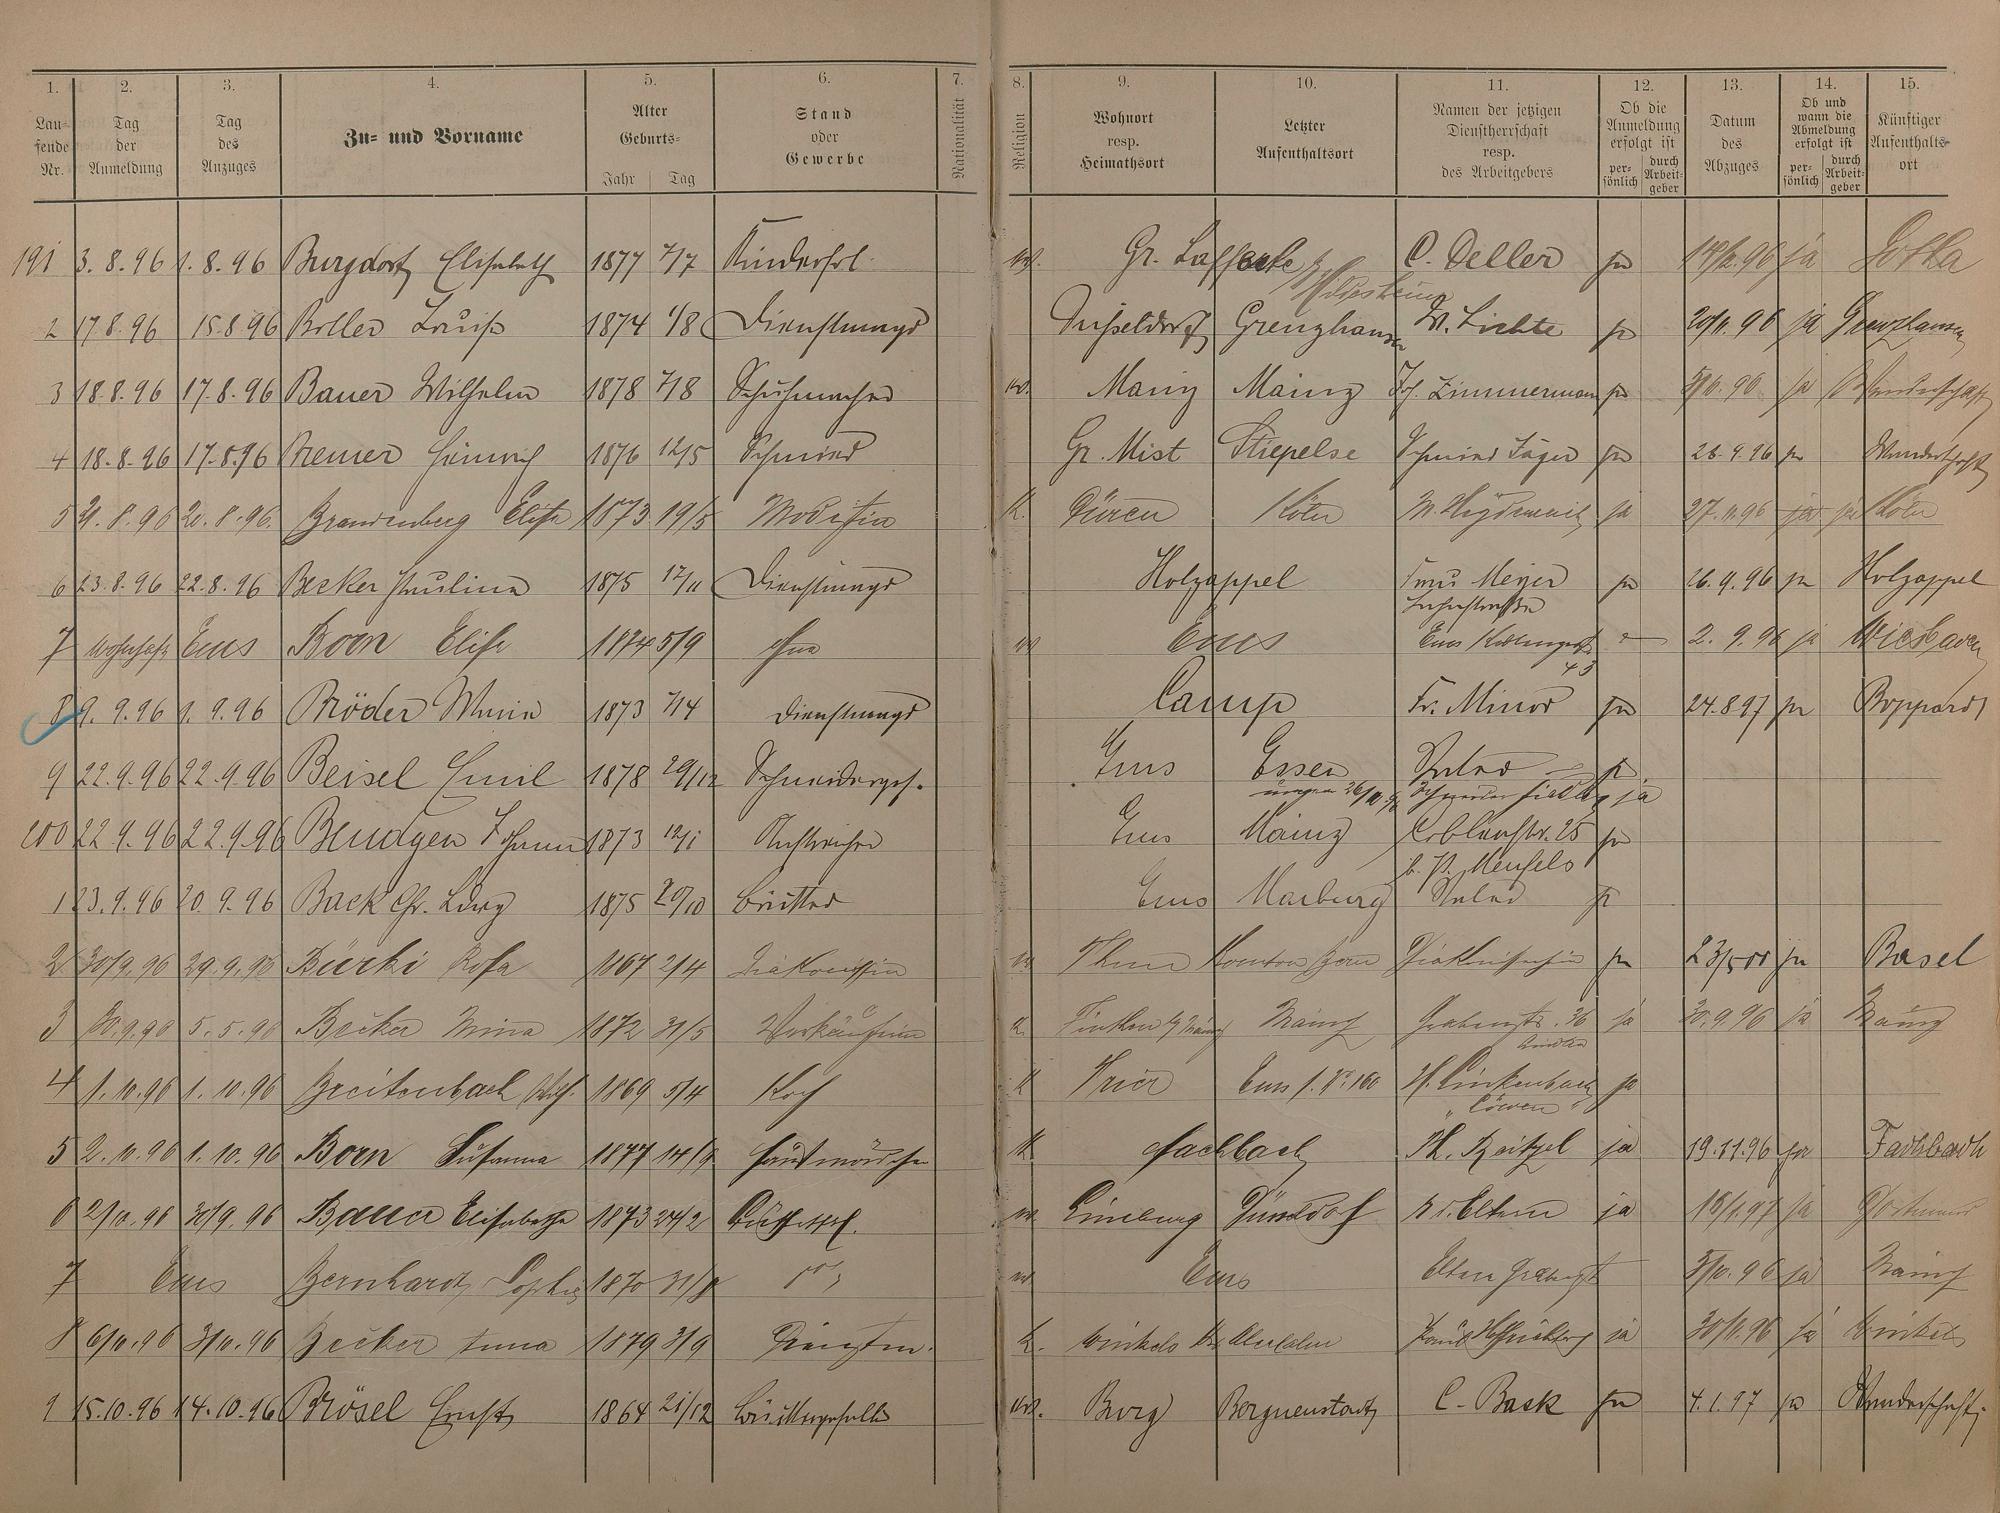 1. 2. 3. 4. 5. 6. 7. 8. 9. 10. 11. 12. 13. 14. 15.
Lau-
fende
Nr.
Tag
der
Anmeldung
Tag
des
Anzuges
Zu- und Vorname
Alter
Geburts-
Jahr Tag
Stand
oder
Gewerbe
Nationalität
Religion
Wohnort
resp.
Heimathsort
Letzter
Aufenthaltsort
Namen der jetzigen
Dienstherrschaft
resp.
des Arbeitgebers
Ob die
Anmeldung
erfolgt ist
per-
sönlich
durch
Arbeit-
geber
Datum
des
Abzuges
Ob und
wann die
Abmeldung
erfolgt ist
per-
sönlich
durch
Arbeit-
geber
Künftiger
Aufenthalts-
ort
191 3.8.96 1.8.96 Burgdorf Elisabeth 1877 7/7 Kinderfrl. Gr. Lafferte C. Deller ja ja Gotha
Hildesheim
2 17.8.96 15.8.96 Boller Louise 1874 1/8 Dienstmagd Düsseldorf Grenzhausen W. Lichte ja 20/11.96 ja Grenzhausen
3 18.8.96 17.8.96 Bauer Wilhelm 1878 7/8 Schuhmacher Mainz Mainz Jos. Zimmermann ja ja Wanderschaft
4 18.8.96 17.8.96 Bremer Heinrich 1876 12/5 Schmied Gr. Mist Stiepelse Schmied Jäger ja 26.9.96 ja Wanderschaft
5 21.8.96 20.8.96 Brandenberg Elise 1873 19/5 Modistin K. Düren Köln ja 27.11.96 ja ja Köln
6 23.8.96 22.8.96 Becker Paulina 1875 12/11 Dienstmagd Holzappel Frau Meyer ja 26.9.96 ja Holzappel
7 wohnhaft Ems Born Elise 1874 5/9 ohne Ems Ems 2.9.96 ja Wiesbaden
43
8 9.9.96 1.9.96 Bröder Maria 1873 7/4 Dienstmagd Camp Fr. Minor ja 24.8.97 ja Boppard
9 22.9.96 22.9.96 Beisel Emil 1878 29/12 Schneiderges. Ems Essen ja
ja
200 22.9.96 22.9.96 Bendgen Johann 1873 12/1 Anstreicher Ems Mainz Coblenzstr. 25 ja
b. P. Menfels
1 23.9.96 20.9.96 Back Chr. 1875 20/10 Ems Marburg ja
2 30/9.96 29.9.96 Bürki Rosa 1867 2/4 Diakonissin Thun Kanton Bern ja 23/5 00 ja Basel
3 30.9.96 5.5.96 Becker Mina 1872 31/5 Verkäuferin K. Mainz Grabenstr. 36 ja 30.9.96 ja Mainz
4 1.10.96 1.10.96 Breitenbach 1869 5/4 Koch K Trier H. Linkenbach ja
" Löwen "
5 2.10.96 1.10.96 Born Susanna 1877 14/9 Hausmädchen K Fachbach ja 19.11.96 ja Fachbach
6 2/10.96 30/9.96 Bauer Elisabetha 1873 24/2 Limburg ja 18/1.97 ja Dortmund
7 Ems Bernhardt Sophie 1870 31/8 Ems Eltern ja Mainz
8 6/10.96 3/10.96 Becker Anna 1879 3/9 K. ja 30/11.96 ja Winkels
9 15.10.96 14.10.96 Brösel Ernst 1864 21/12 Burg C. Bask ja 4.1.97 ja Wanderschaft.